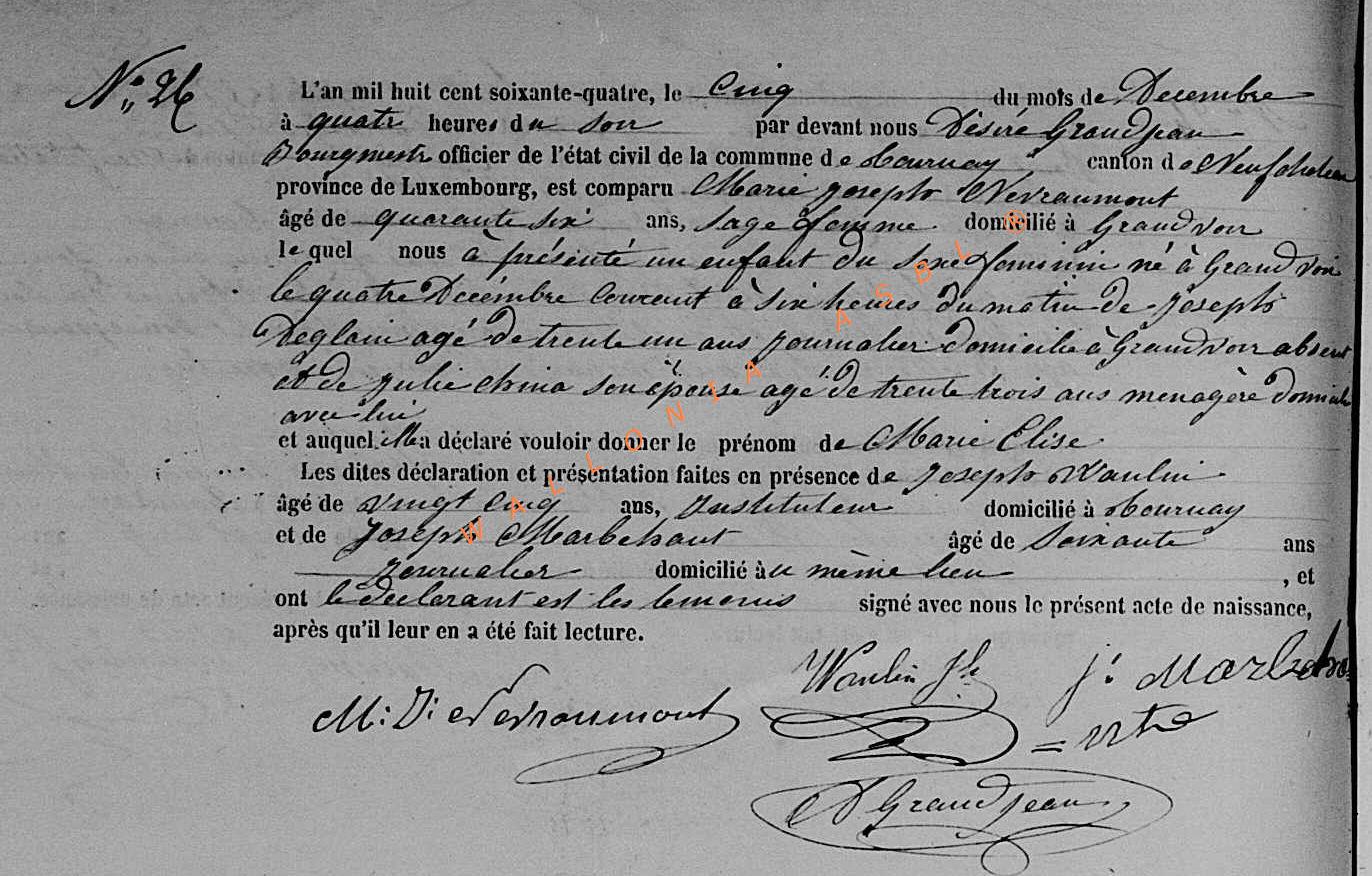 N° 26
L'an mil huit cent soixante-quatre, le cinq du mois de Decembre
à quatr heures du soir par devant nous Désiré Grandjean
Bourgmestr officier de l'état civil de la commune de Tournay canton de Neufchateau
province de Luxembourg, est comparu Marie Joseph Nevraumont
âgé de quarante six ans, sage femme domicilié à Grandvoir
le quel nous à présenté un enfant du sexe feminin né à Grandvoir
le quatre Décembre courent à six heures du matin de Joseph
Deglain agé de trente un ans journalier domicilié à Grandvoir absent
et de Julie China son épouse agé de trente trois ans menagère domicilié
avec lui
et auquel Elle a déclaré vouloir donner le prénom de Marie Elise
Les dites déclaration et présentation faites en présence de Joseph Waulin
âgé de vingt cinq ans, Instituteur domicilié à Tournay
et de Joseph Marbehant âgé de Soixante ans
journalier domicilié àu même lieu , et
ont le declarant est les temoins signé avec nous le présent acte de naissance,
après qu'il leur en a été fait lecture.
Waulin Jh J: Marbehan
M: J: Nevraumont
D Grandjean
WALLONIA ASBL ®